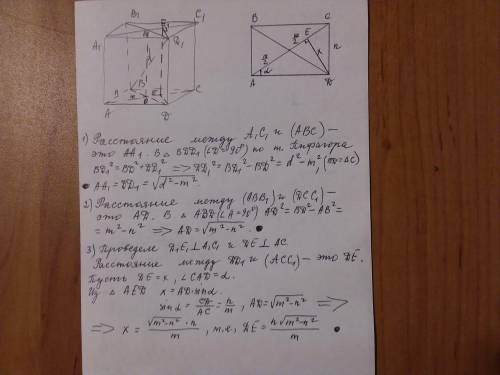 B₁ C₁ A₁ D₁
B C A D
B C A D E n x α m/2
1) Расстояние между A₁C₁ и (ABC) –
это AA₁. В △ BDD₁ (∠D=90°) по т. Пифагора
BD₁² = BD² + DD₁² ⟹ DD₁² = BD₁² – BD² = d² – m², (BD=AC)
• AA₁ = DD₁ = √(d² – m²)
2) Расстояние между (ABB₁) и (DCC₁) –
это AD. В △ ABD (∠A=90°) AD² = BD² – AB² =
= m² – n² ⟹ AD = √(m² – n²) •
3) Проведем D₁E₁ ⊥ A₁C₁ и DE ⊥ AC.
Расстояние между DD₁ и (ACC₁) – это DE.
Пусть DE = x, ∠CAD = α.
Из △ AED x = AD·sin α.
sin α = CD/AC = n/m, AD = √(m² – n²) ⟹
⟹ x = √(m² – n²) · n / m, т.е., DE = n√(m² – n²) / m •